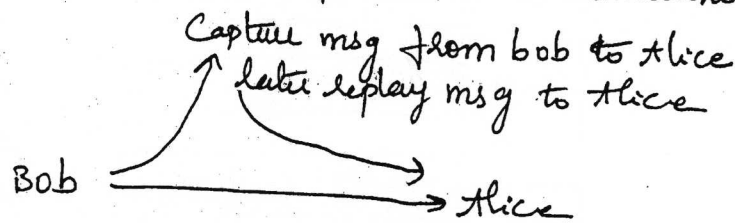 Capture msg from bob to Alice
later replay msg to Alice
Bob
Alice